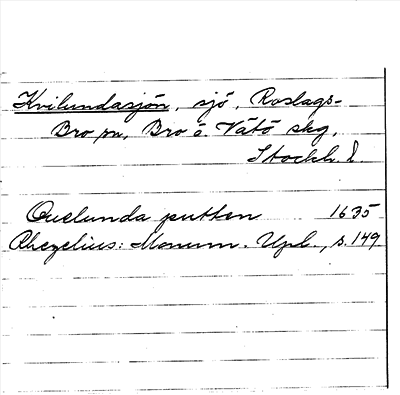 Kvilundasjön, sjö, Roslags-
Bro sn, Bro o Vätö skg,
Stockh. l.
Quelunda putten 1635
Rhezelius: Monum. Upl., s. 149